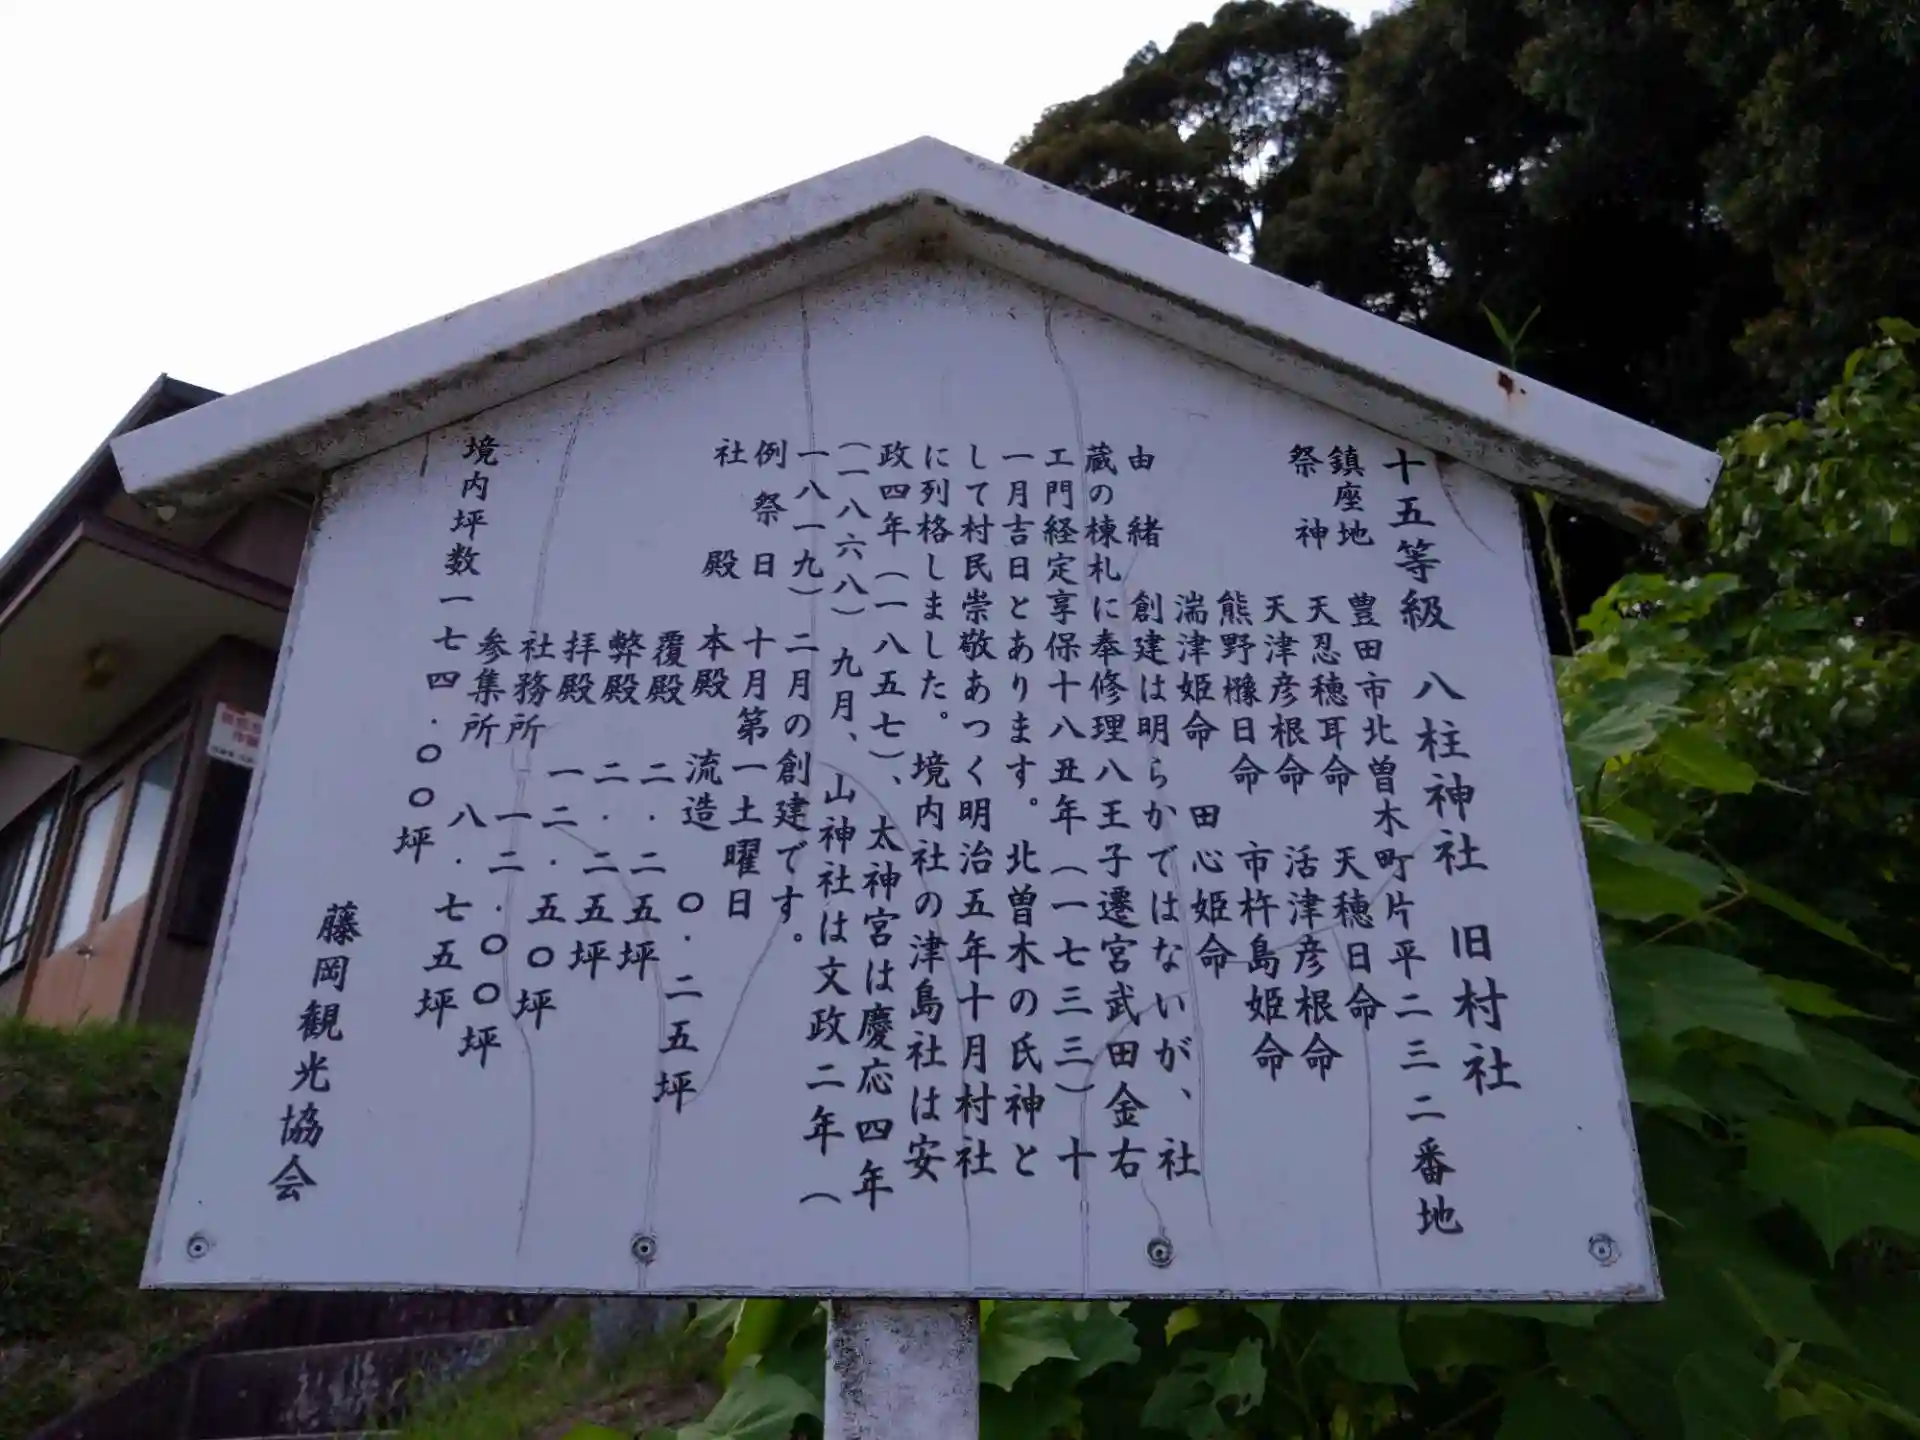 十五等級　八柱神社　旧村社
鎮座地　豊田市北曽木町片平二三二番地
祭神　天忍穂耳命　天穂日命
天津彦根命　活津彦根命
熊野櫲日命　市杵島姫命
湍津姫命　田心姫命
由緒　創建は明らかではないが、社
蔵の棟札に奉修理八王子遷宮武田金右
エ門経定享保十八丑年（一七三三）十
一月吉日とあります。北曽木の氏神と
して村民崇敬あつく明治五年十月村社
に列格しました。境内社の津島社は安
政四年（一八五七）、太神宮は慶応四年
（一八六八）九月、山神社は文政二年（
一八一九）二月の創建です。
例祭日　十月第一土曜日
社殿　本殿　流造　〇．二五坪
覆殿　二．二五坪
弊殿　二．二五坪
拝殿　一二．五〇坪
社務所　一二．〇〇坪
参集所　八．七五坪
境内坪数一七四．〇〇坪
藤岡観光協会